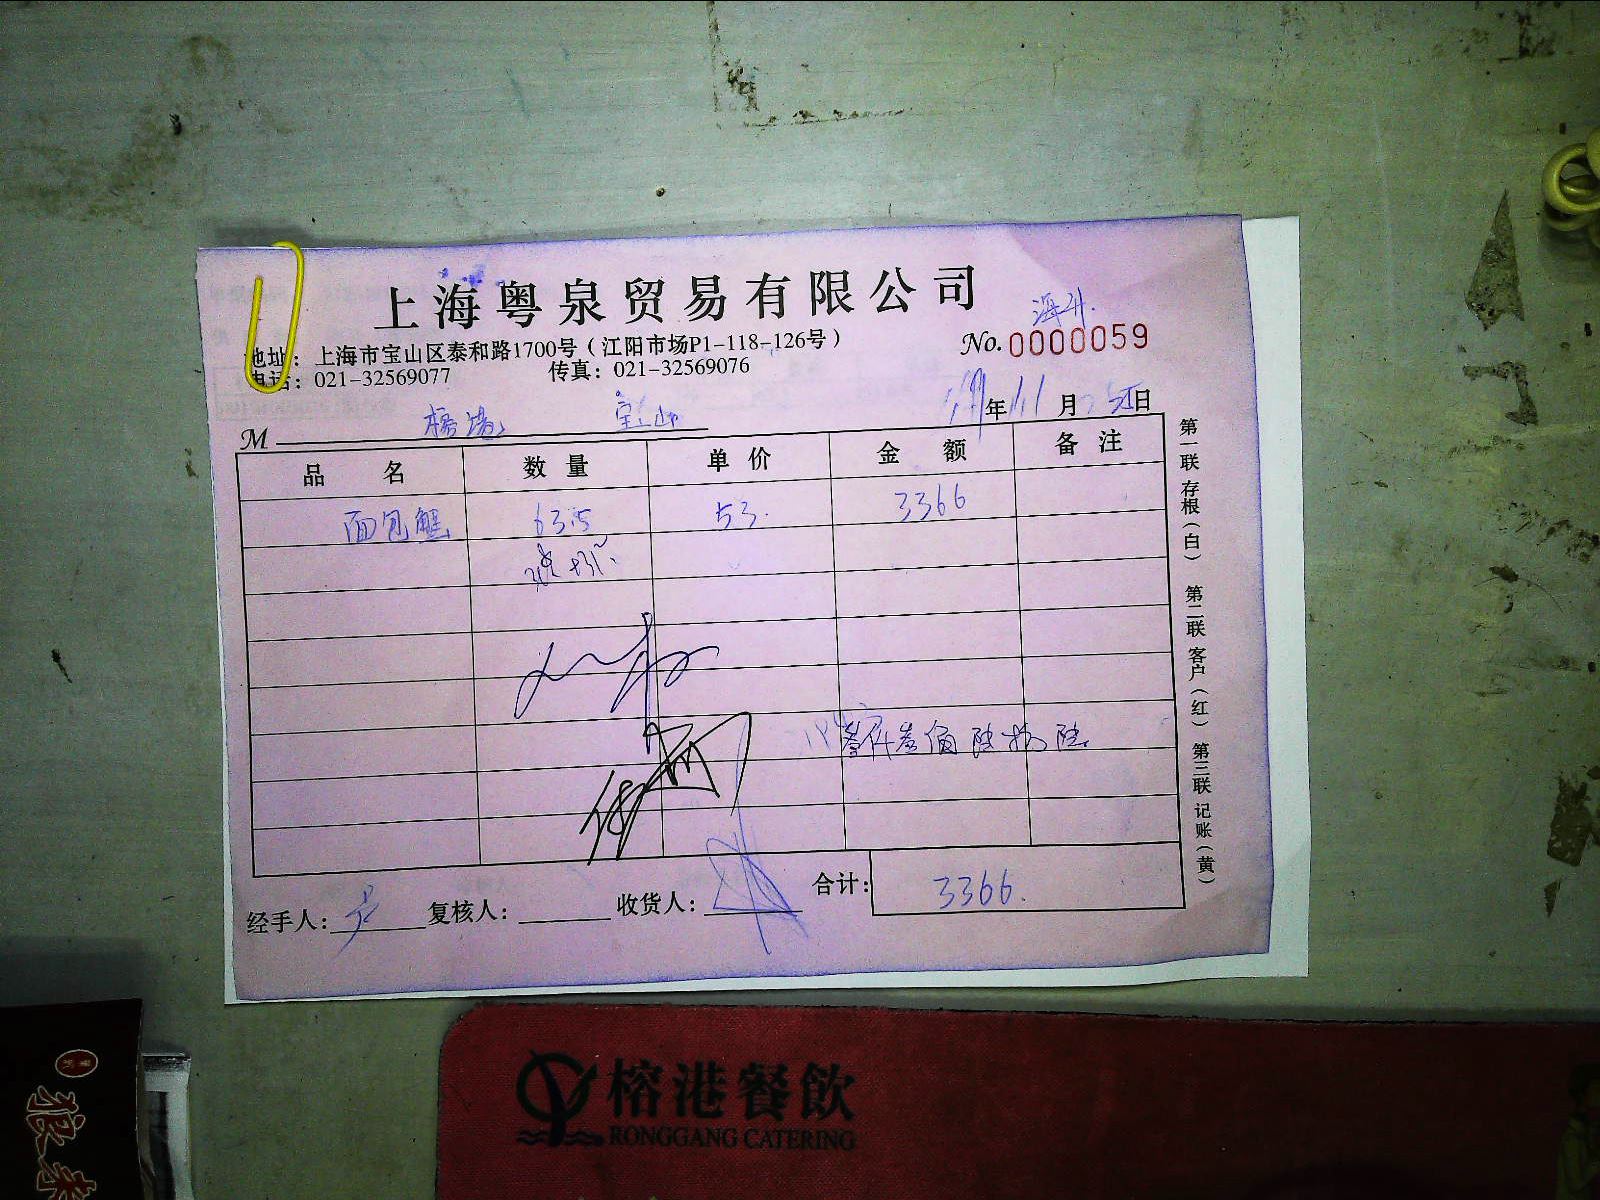 上海粤泉贸易有限公司
地址：上海市宝山区泰和路1700号（江阳市场P1-118-126号）
No.0000059
电话：021-32569077 传真：021-32569076
M 榕港 宝山
年 11 月 日
品名 数量 单价 金额 备注
面包蟹 63.5 53. 3366
叁仟叁佰陆拾陆
合计： 3366.
经手人： 复核人： 收货人：
第一联 存根（白） 第二联 客户（红） 第三联 记账（黄）
榕港餐飲
RONGGANG CATERING